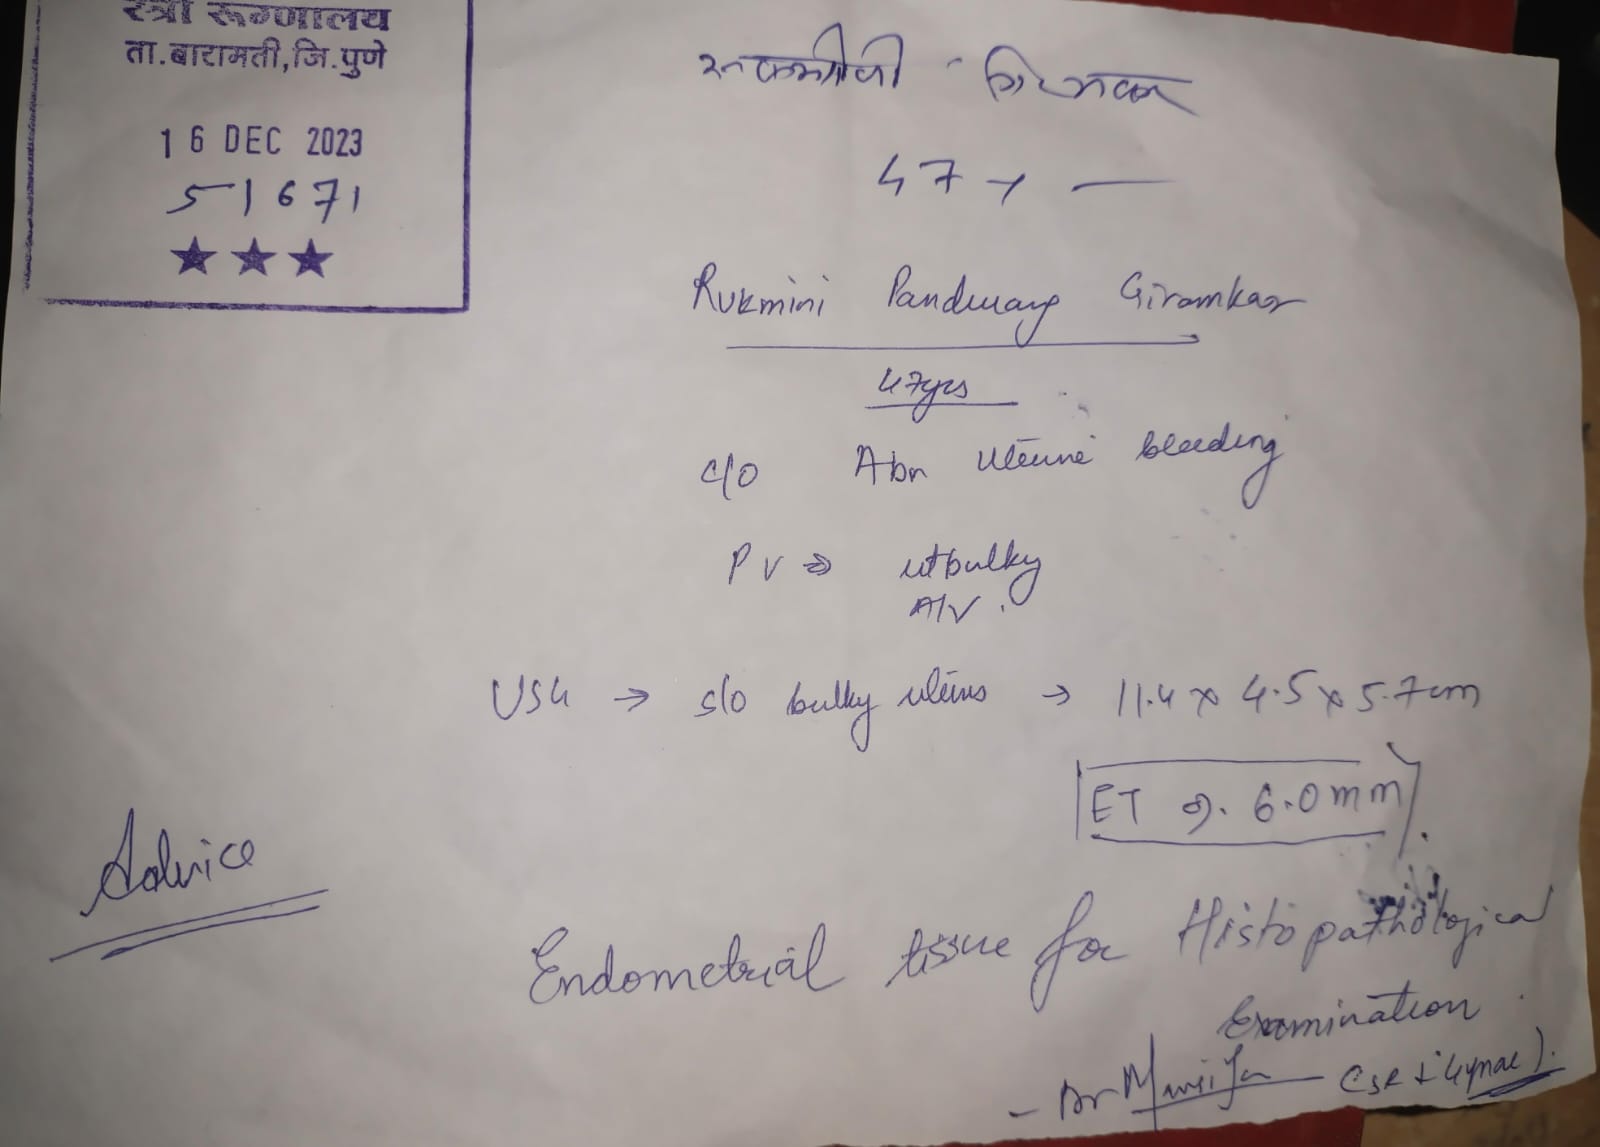 स्त्री रूग्णालय
ता.बारामती,जि.पुणे
16 DEC 2023
51671
47 y
Rukmini Pandurang Giramkar
47yrs
c/o Abn Uterine bleeding
PV ⇒ ut bulky
A/V.
USG → s/o bulky uterus → 11.4 x 4.5 x 5.7cm
ET 6.0mm
Advice
Endometrial tissue for Histopathological
Examination
- Dr